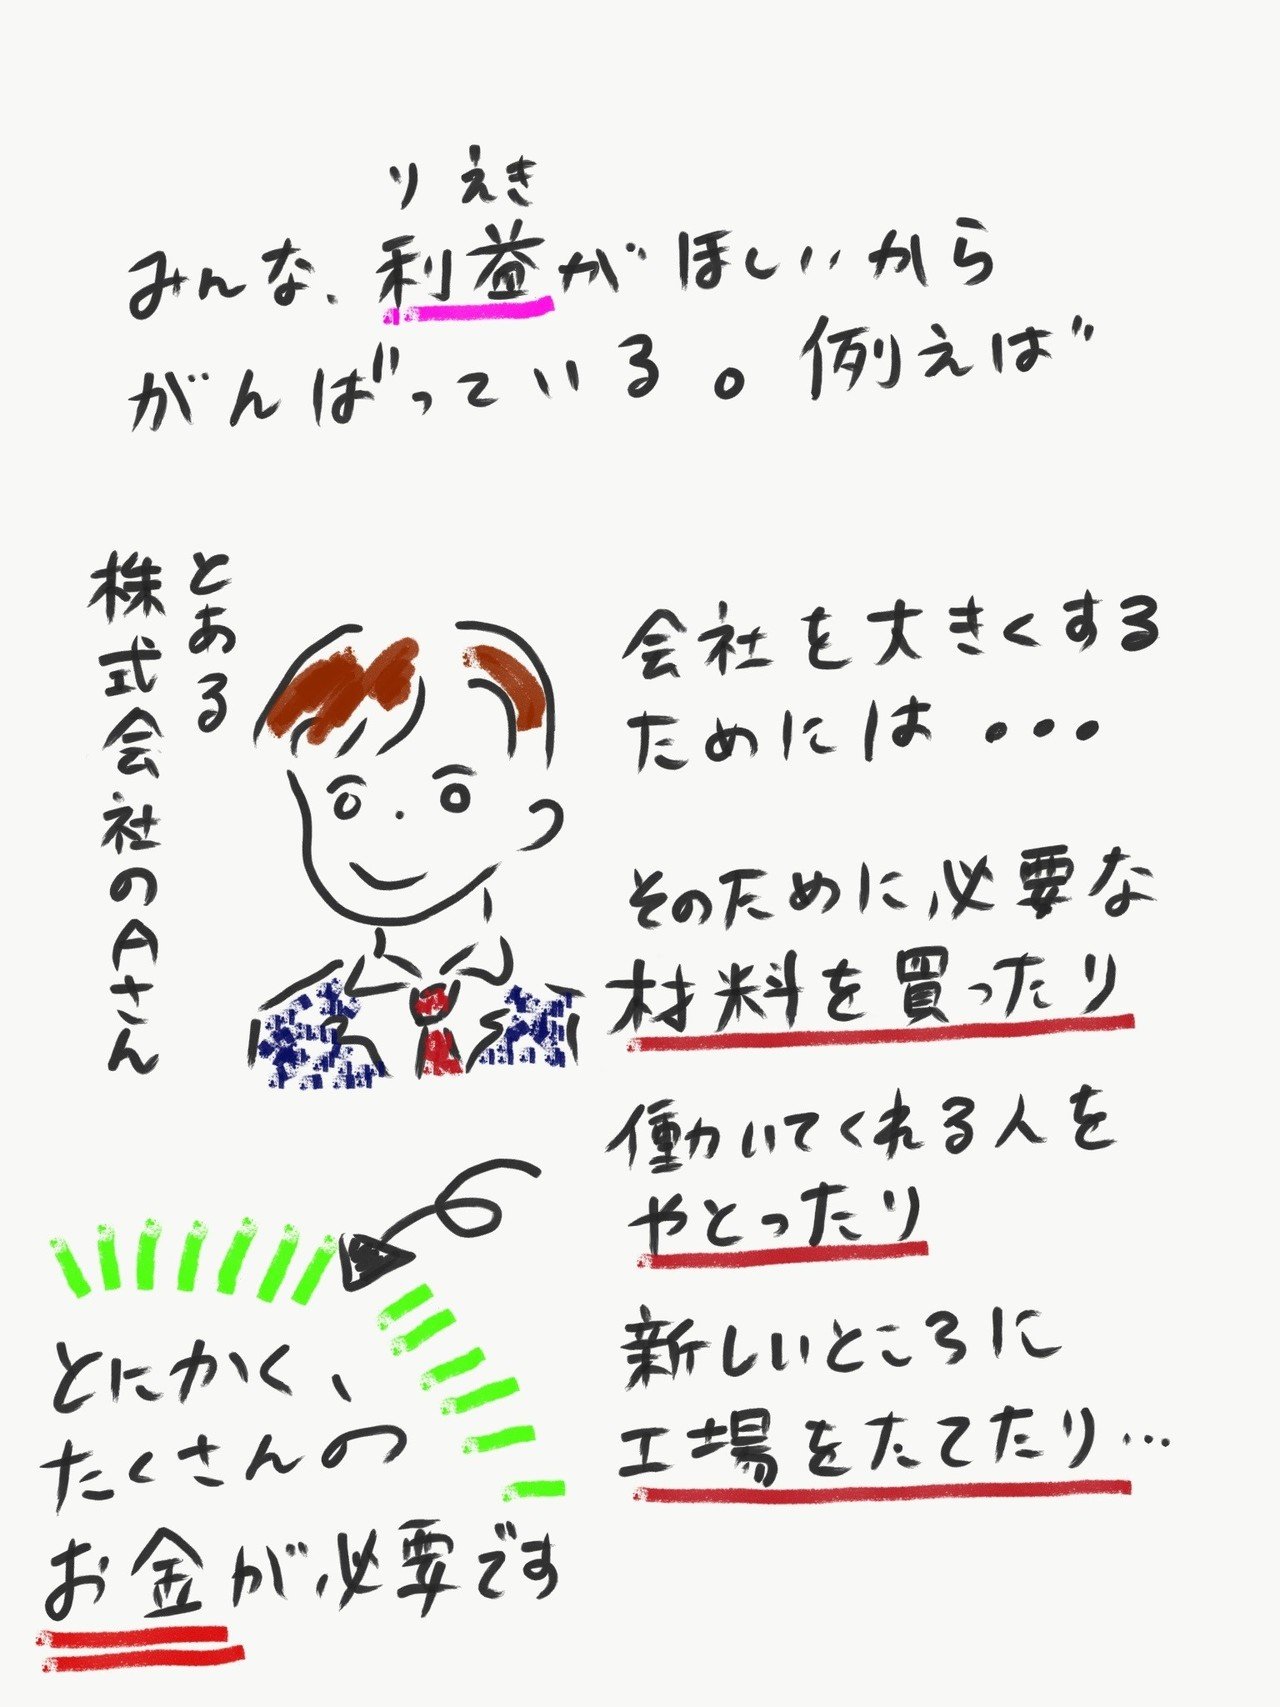 りえき
みんな、利益がほしいから
がんばっている。例えば
とある
株式会社のAさん
会社を大きくする
ためには・・・
そのために必要な
材料を買ったり
働いてくれる人を
やとったり
新しいところに
工場をたてたり…
とにかく、
たくさんの
お金が必要です